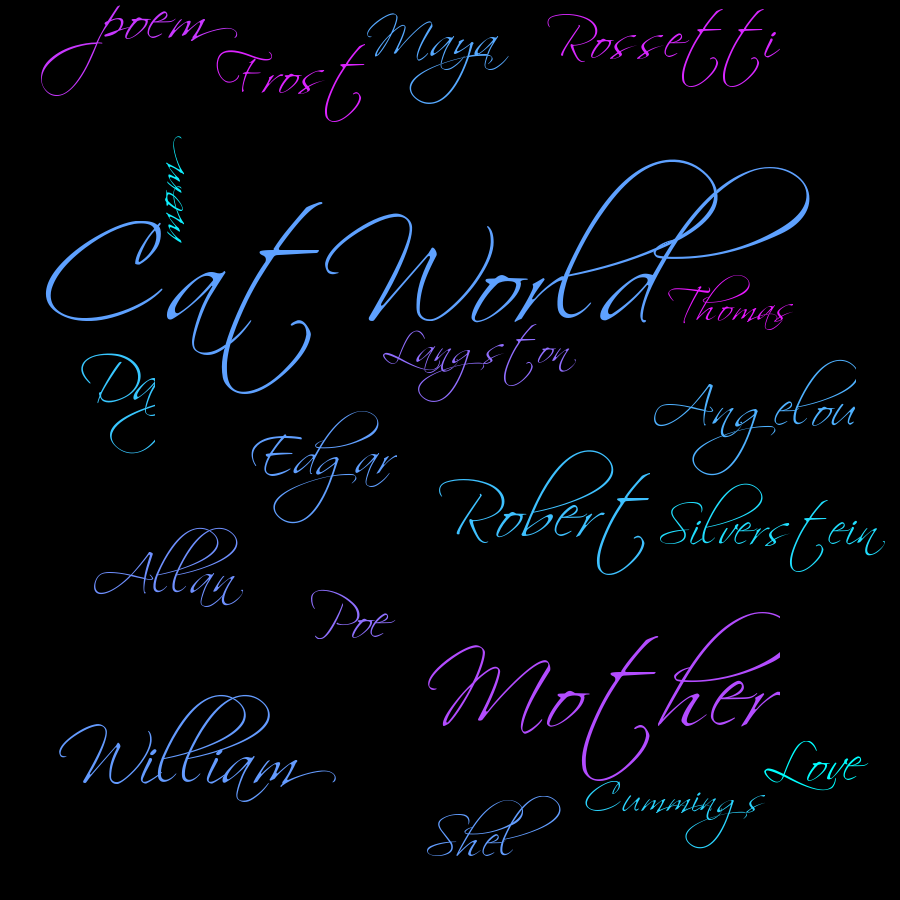 poem
Frost
Maya
Rossetti
mom
Cat World
Thomas
Langston
Day
Angelou
Edgar
Robert
Silverstein
Allan
Poe
Mother
William
Love
Cummings
Shel